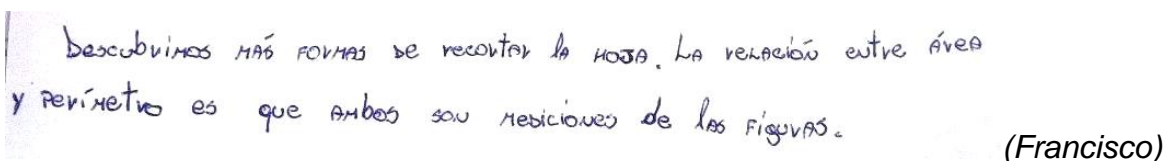 Descubrimos más formas de recortar la hoja. La relación entre área
y perímetro es que ambos son mediciones de las figuras.
(Francisco)